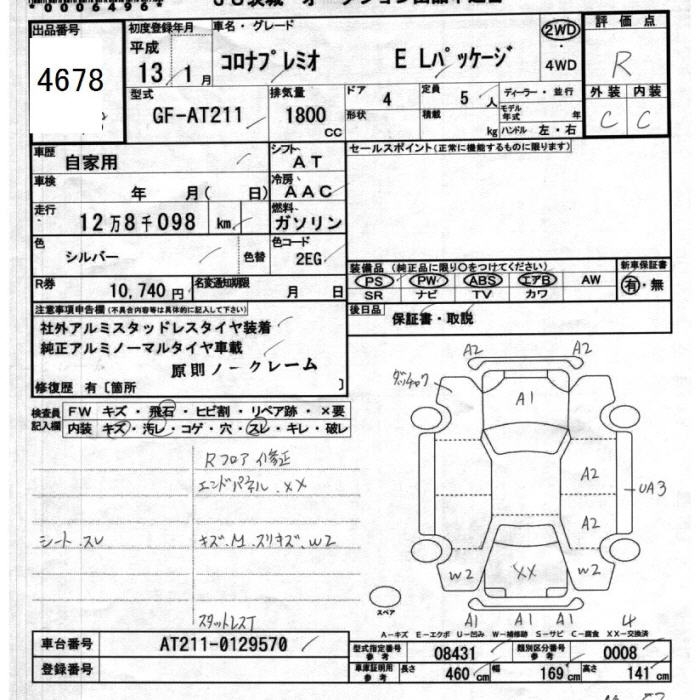 *00064964*
出品番号
4678
初度登録年月
平成
13 1月
車名・グレード
コロナプレミオ E Lパッケージ
2WD
・
4WD
評価点
R
外装 内装
C C
型式
GF-AT211
排気量
1800
CC
ドア 4
形状
定員 5 人
積載 kg
ディーラー・並行
モデル年式 年
ハンドル 左・右
車歴 自家用
シフト AT
車検 年 月( 日)
冷房 AAC
走行 12万8千098 km
燃料 ガソリン
色 シルバー 色替
色コード 2EG
R券 10,740円
名変通知期限 月 日
セールスポイント(正常に機能するものに限ります)
装備品(純正品に限り〇をつけてください)
新車保証書
PS PW ABS エアB AW
有・無
SR ナビ TV カワ
後日品
保証書・取説
注意事項申告欄(不具合内容等は具体的に記入して下さい)
社外アルミスタッドレスタイヤ装着
純正アルミノーマルタイヤ車載
原則ノークレーム
修復歴 有〔箇所 〕
検査員記入欄
FW キズ・飛石・ヒビ割・リペア跡・×要
内装 キズ・汚レ・コゲ・穴・スレ・キレ・破レ
Rフロア修正
エンドパネル.XX
シート.スレ
キズ.M.スリキズ.W2
A2 A2
A1
A2
UA3
A2
W2 XX W2
スペア
A1 A1 A1 4
A－キズ E－エクボ U－凹み W－補修跡 S－サビ C－腐食 XX－交換済
車台番号 AT211-0129570
登録番号
型式指定番号 参考 08431
類別区分番号 参考 0008
車庫証明用 参考 長さ 460 cm 幅 169 cm 高さ 141 cm